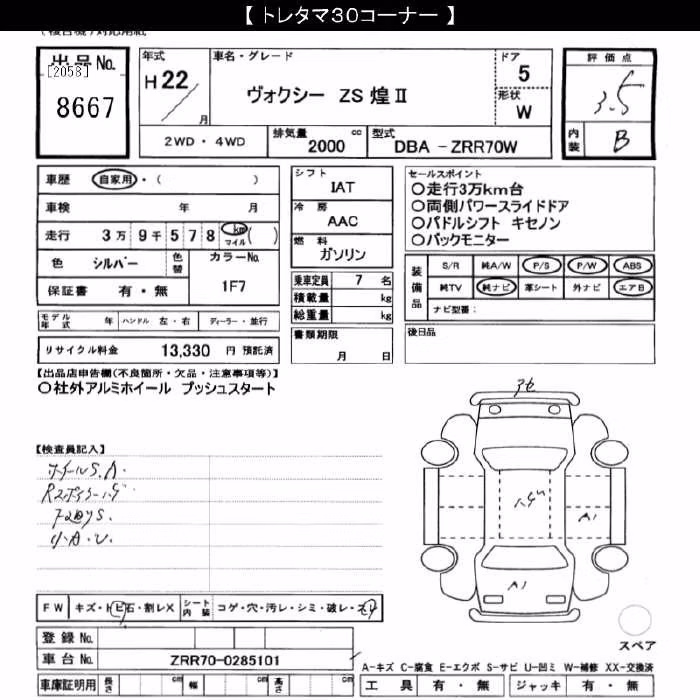 【 トレタマ30コーナー 】
出品No.
[2058]
8667
年式 車名・グレード ドア
H 22 / 月 ヴォクシー ZS 煌Ⅱ 5
形状 W
2WD・4WD 排気量 2000 cc 型式 DBA -ZRR70W
評価点
3.5
内装 B
車歴 自家用・( )
車検 年 月
走行 3万 9千 5 7 8 km マイル ( )
色 シルバー 色替 カラーNo.
保証書 有・無 1F7
モデル年式 年 ハンドル 左・右 ディーラー・並行
リサイクル料金 13,330 円 預託済
シフト
IAT
冷房
AAC
燃料
ガソリン
乗車定員 7 名
積載量 kg
総重量 kg
書類期限
月 日
セールスポイント
〇走行3万km台
〇両側パワースライドドア
〇パドルシフト キセノン
〇バックモニター
装備品 S/R 純A/W P/S P/W ABS
純TV 純ナビ 革シート 外ナビ エアB
ナビ型番:
後日品
【出品店申告欄(不良箇所・欠品・注意事項等)】
〇社外アルミホイール プッシュスタート
【検査員記入】
ホイールS.A.
小A.U.
ハゲ
A1
A1
FW キズ・トビ石・割レX シート内装 コゲ・穴・汚レ・シミ・破レ・スレ
登録No.
車台No. ZRR70-0285101
車庫証明用 長さ cm 幅 cm 高さ cm
スペア
A-キズ C-腐食 E-エクボ S-サビ U-凹ミ W-補修 XX-交換済
工具 有・無 ジャッキ 有・無